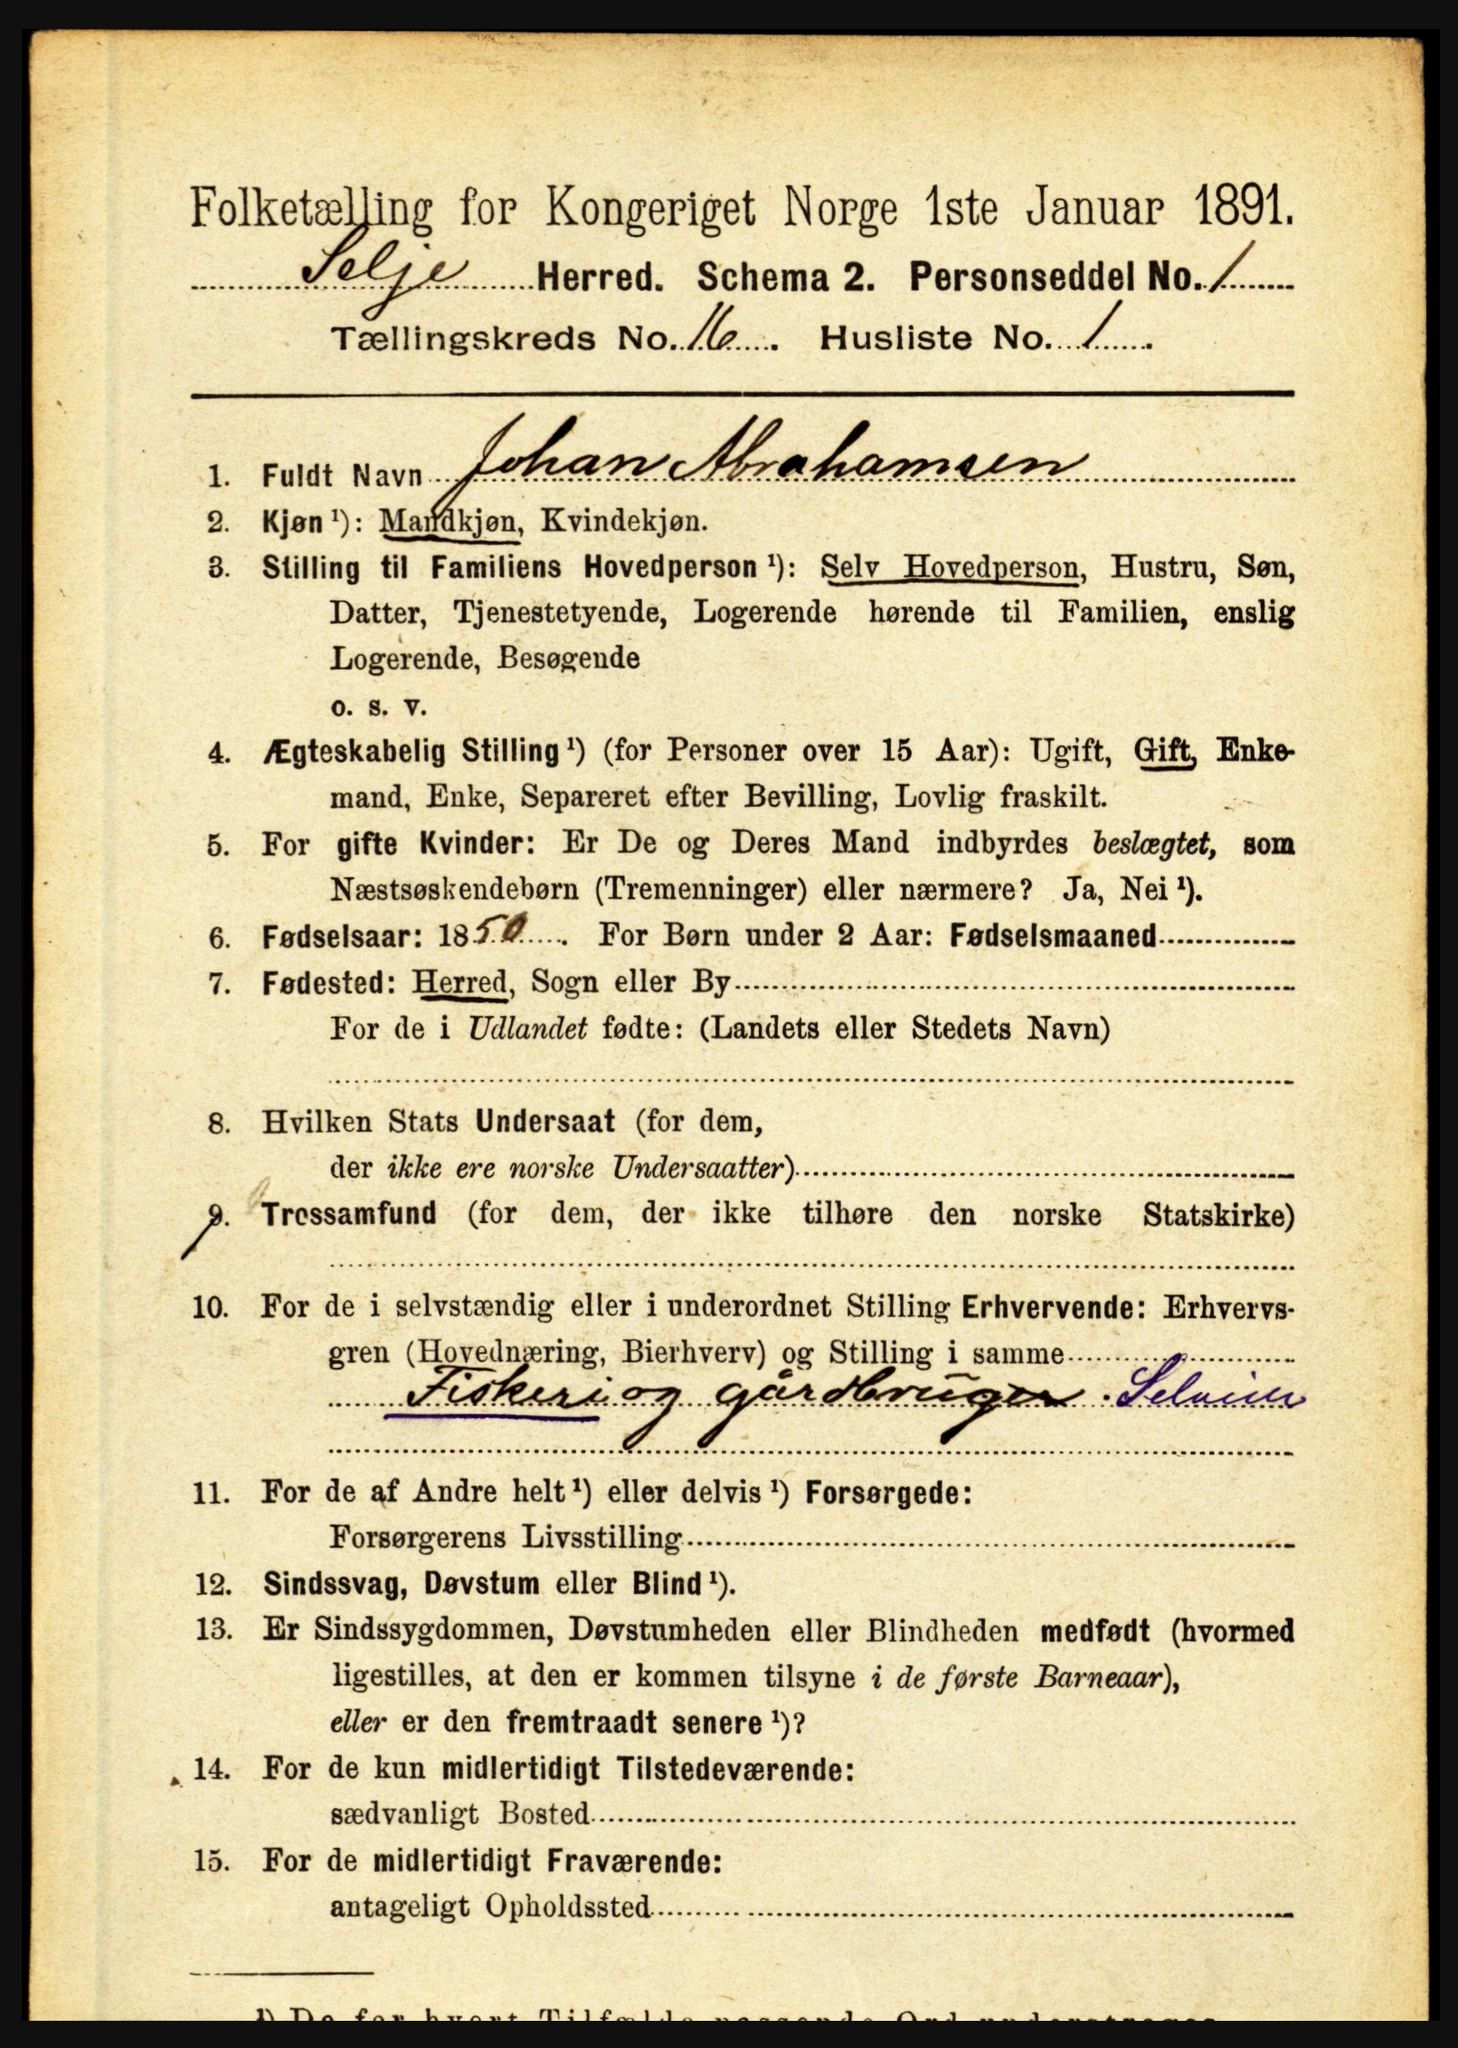 Folketælling for Kongeriget Norge 1ste Januar 1891.
Selje Herred. Schema 2. Personseddel No. 1
Tællingskreds No. 16. Husliste No. 1.
1. Fuldt Navn Johan Abrahamsen
2. Kjøn ¹): Mandkjøn, Kvindekjøn.
3. Stilling til Familiens Hovedperson ¹): Selv Hovedperson, Hustru, Søn,
Datter, Tjenestetyende, Logerende hørende til Familien, enslig
Logerende, Besøgende
o. s. v.
4. Ægteskabelig Stilling ¹) (for Personer over 15 Aar): Ugift, Gift, Enke-
mand, Enke, Separeret efter Bevilling, Lovlig fraskilt.
5. For gifte Kvinder: Er De og Deres Mand indbyrdes beslægtet, som
Næstsøskendebørn (Tremenninger) eller nærmere? Ja, Nei ¹).
6. Fødselsaar: 1850. For Børn under 2 Aar: Fødselsmaaned
7. Fødested: Herred, Sogn eller By
For de i Udlandet fødte: (Landets eller Stedets Navn)
8. Hvilken Stats Undersaat (for dem,
der ikke ere norske Undersaatter)
9. Trossamfund (for dem, der ikke tilhøre den norske Statskirke)
10. For de i selvstændig eller i underordnet Stilling Erhvervende: Erhvervs-
gren (Hovednæring, Bierhverv) og Stilling i samme
Fiskeri og gårdbruger. Selveier
11. For de af Andre helt ¹) eller delvis ¹) Forsørgede:
Forsørgerens Livsstilling
12. Sindssvag, Døvstum eller Blind ¹).
13. Er Sindssygdommen, Døvstumheden eller Blindheden medfødt (hvormed
ligestilles, at den er kommen tilsyne i de første Barneaar),
eller er den fremtraadt senere ¹)?
14. For de kun midlertidigt Tilstedeværende:
sædvanligt Bosted
15. For de midlertidigt Fraværende:
antageligt Opholdssted
¹) De for hvert Tilfælde passende Ord understreges